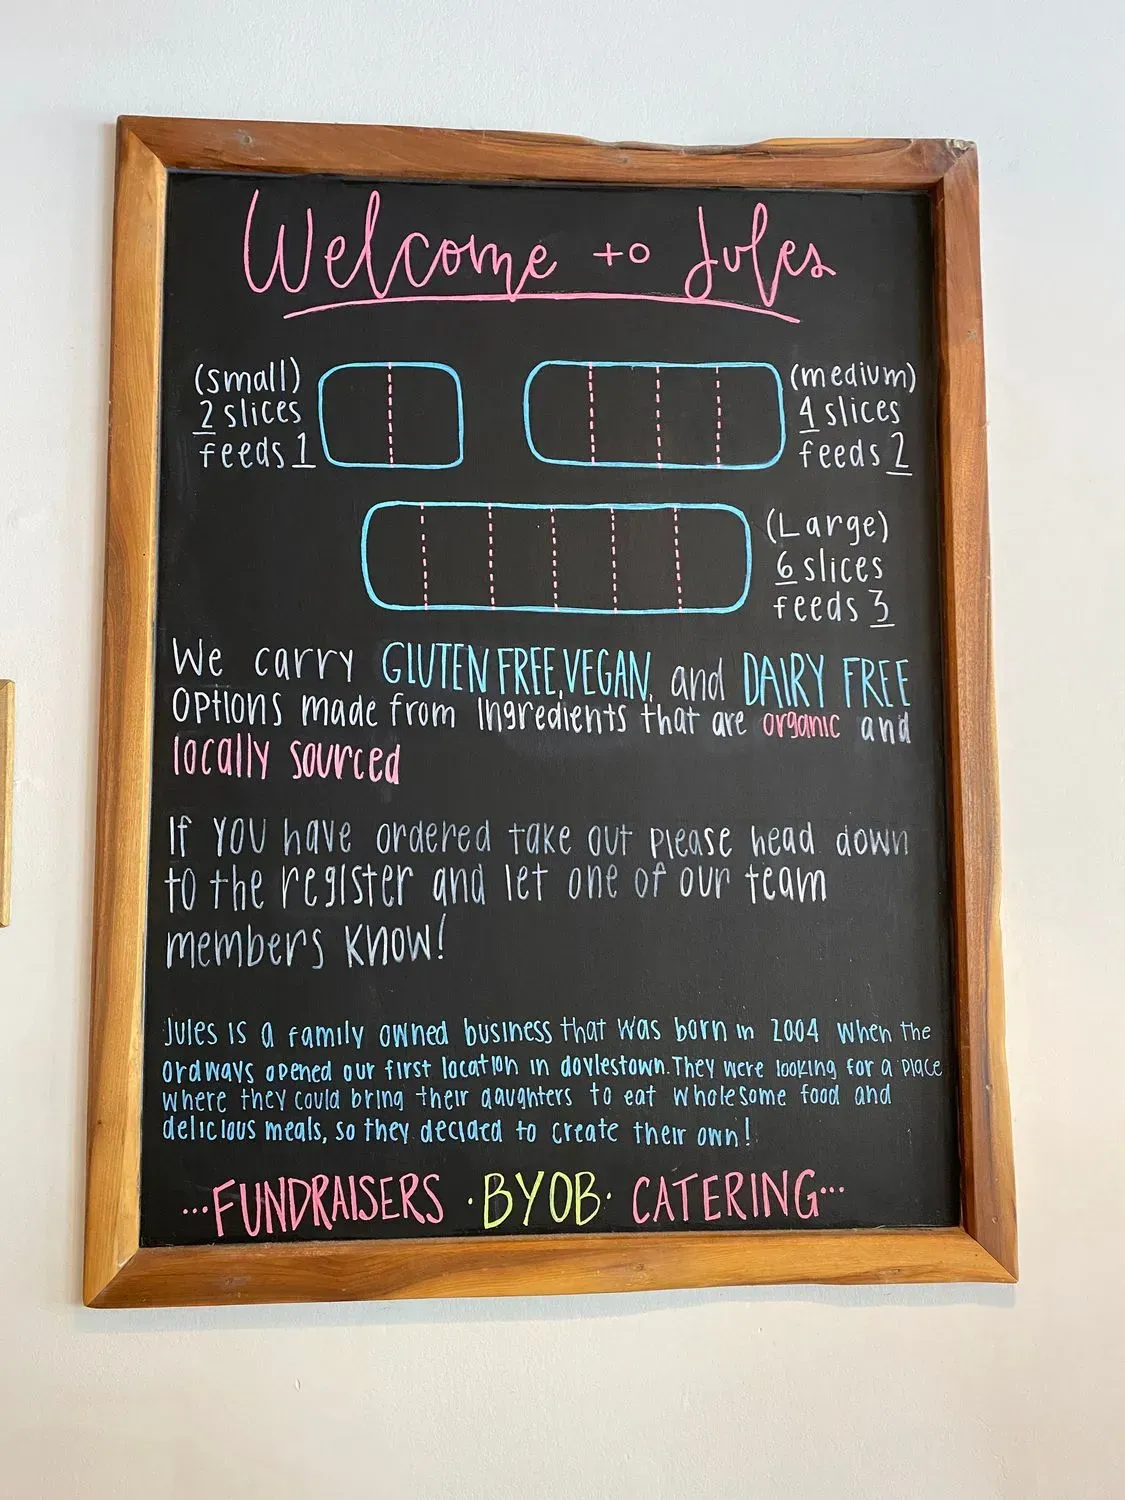 Welcome to Jules
(small)
2 slices
feeds 1
(medium)
4 slices
feeds 2
(Large)
6 slices
feeds 3
We carry GLUTEN FREE, VEGAN, and DAIRY FREE
options made from ingredients that are organic and
locally sourced
If you have ordered take out please head down
to the register and let one of our team
members know!
Jules is a family owned business that was born in 2004 when the
Ordways opened our first location in doylestown. They were looking for a place
where they could bring their daughters to eat wholesome food and
delicious meals, so they decided to create their own!
...FUNDRAISERS · BYOB · CATERING...